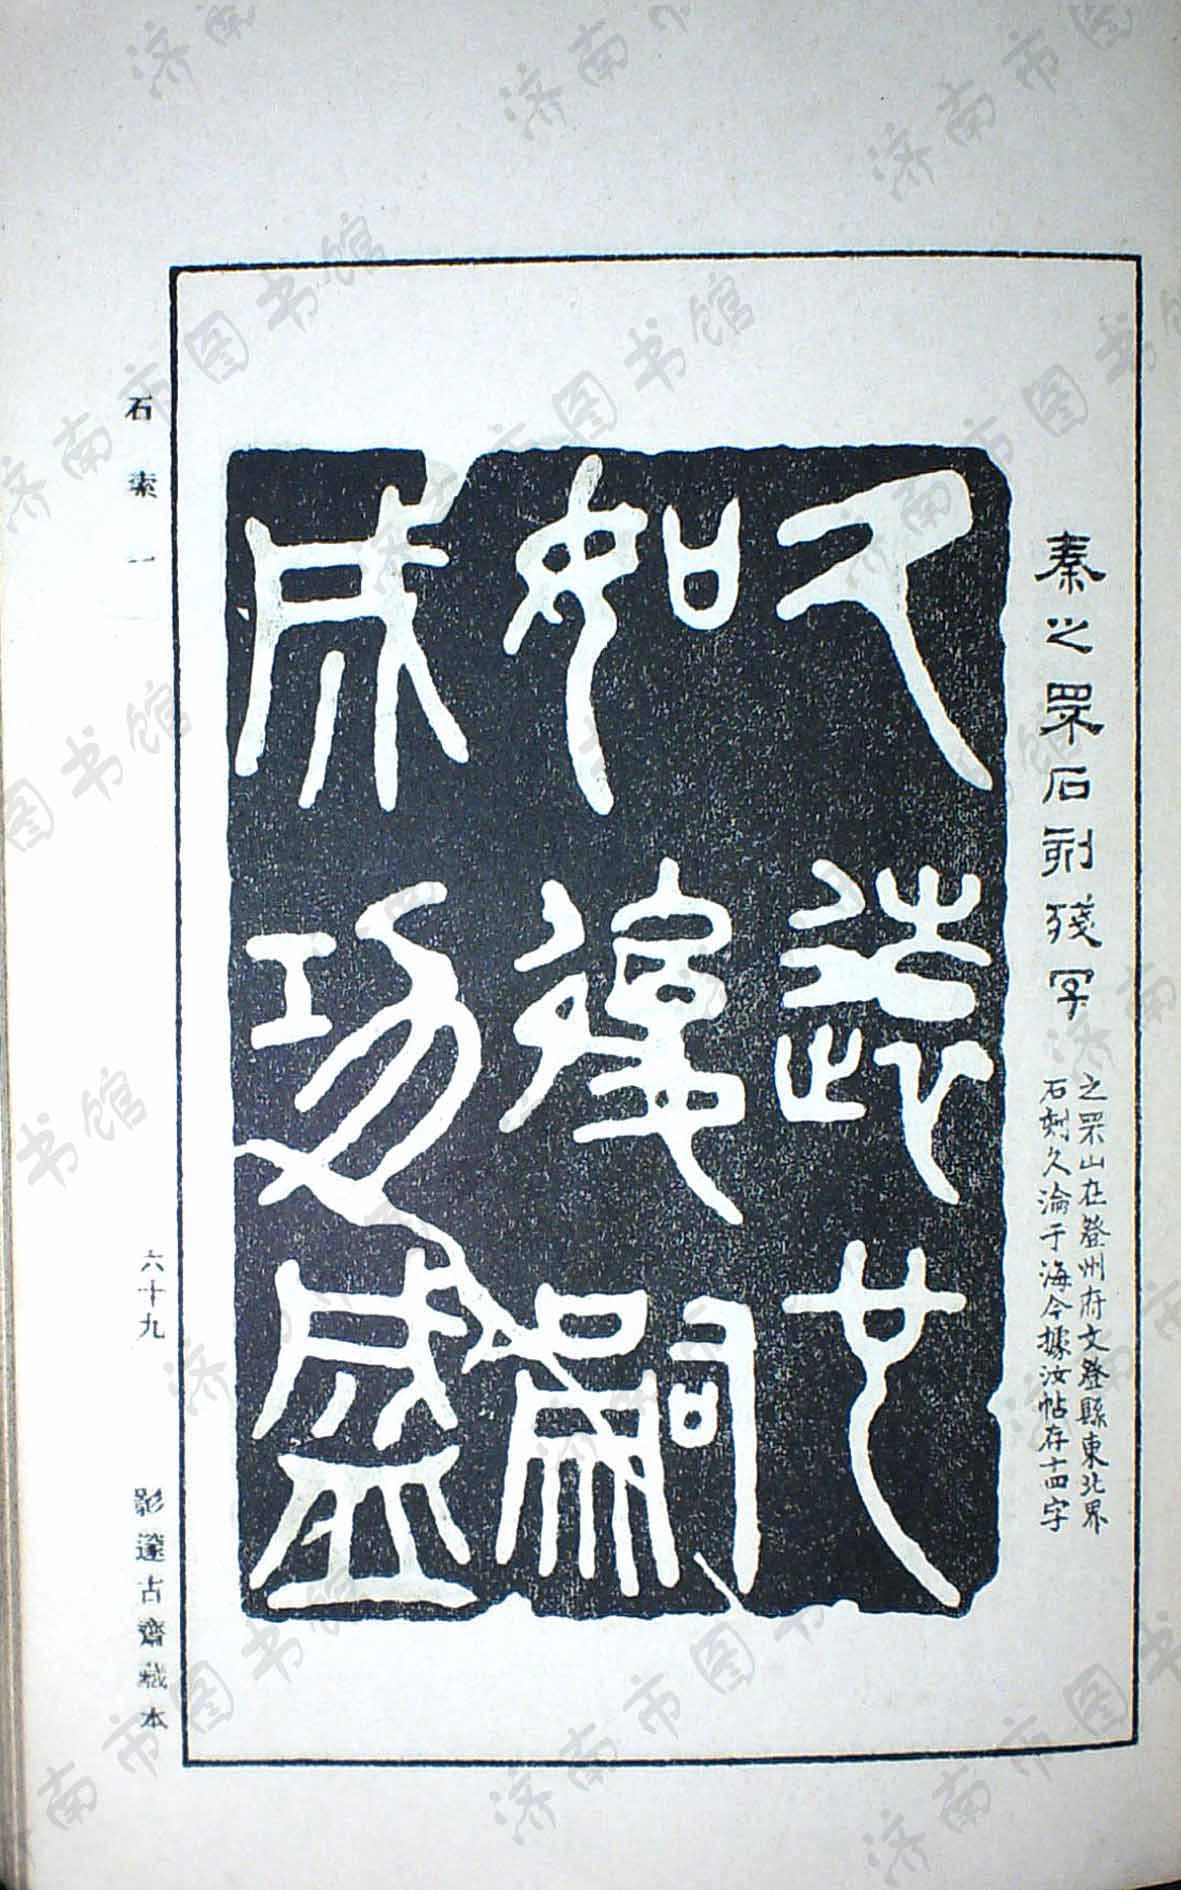 秦之罘石刻殘字
之罘山在登州府文登縣東北界
石刻久淪于海今據汝帖存十四字
久遠也
如後嗣
成功盛
石索一
六十九
影邃古齋藏本
济南市图书馆